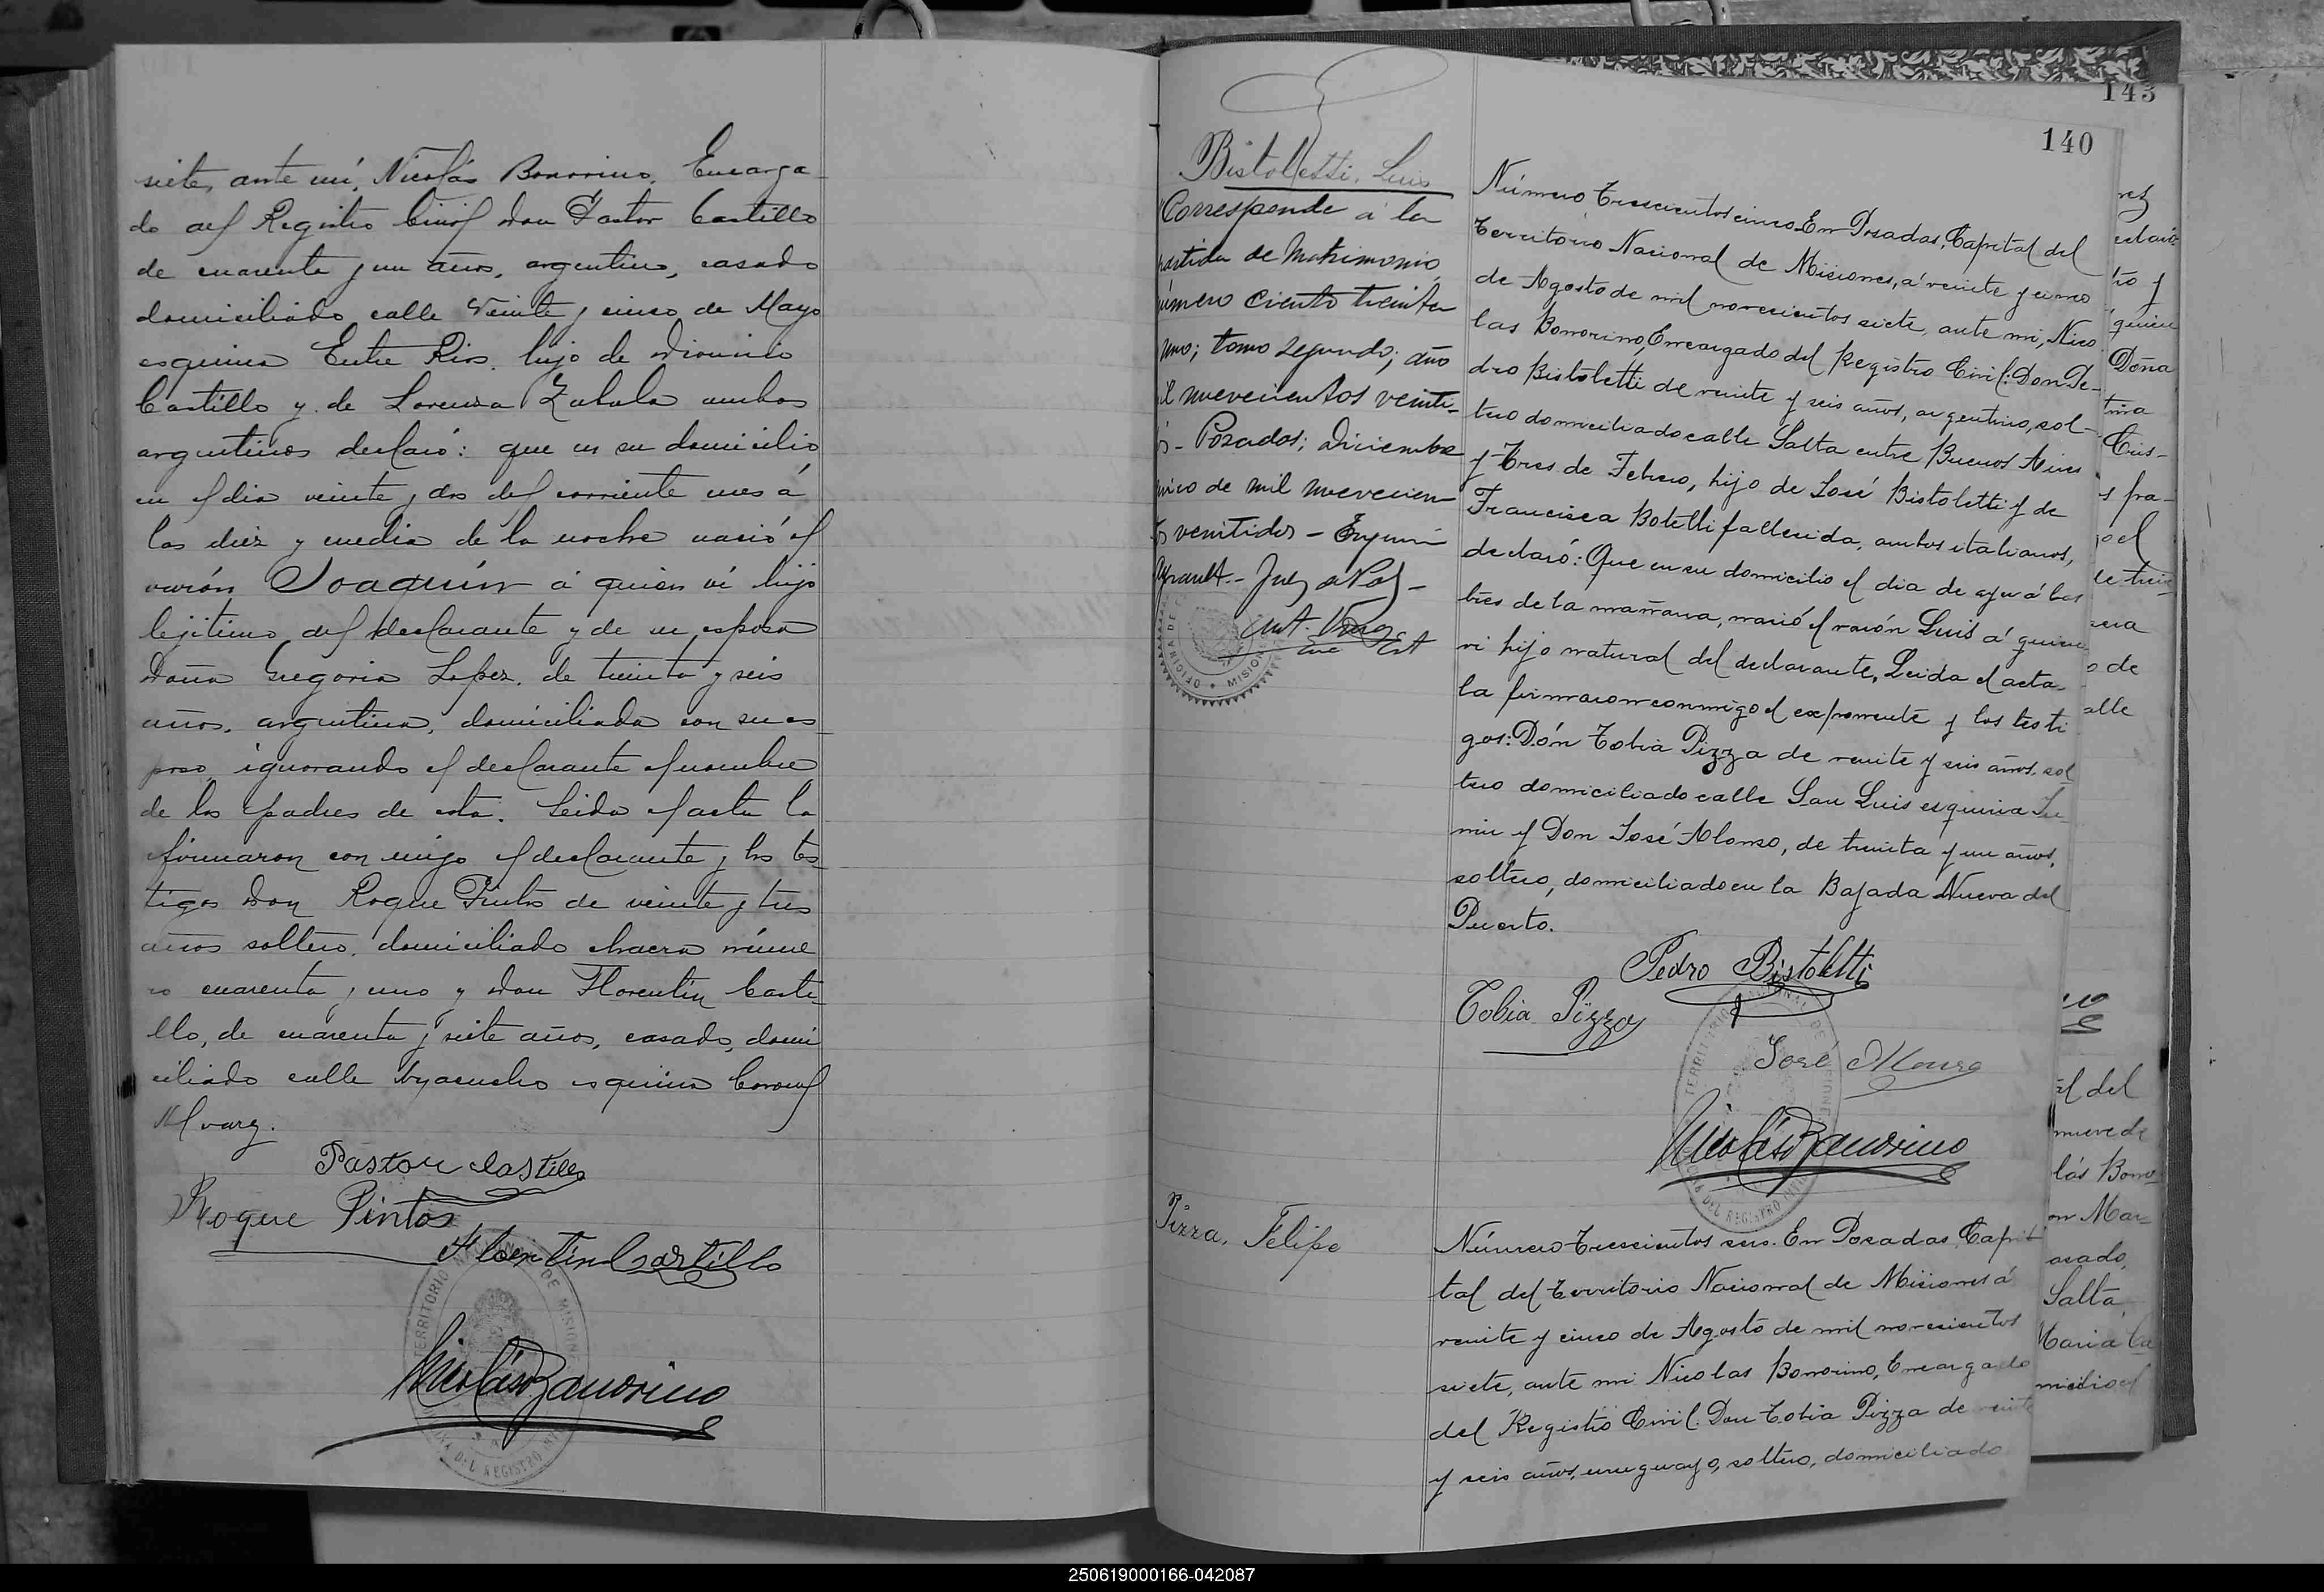 siete, ante mí, Nicolás Bonorino, Encarga-
do del Registro Civil Don Pastor Castillo
de cuarenta y un años, argentino, casado
domiciliado calle Veinte y cinco de Mayo
esquina Entre Rios, hijo de Dionicio
Castillo y de Lorenza Zabala ambos
argentinos declaró: que en su domicilio
en el dia veinte y dos del corriente mes á
las diez y media de la noche nació el
varón Joaquín á quien ví hijo
lejitimo del declarante y de su esposa
Doña Gregoria Lopez, de treinta y seis
años, argentina, domiciliada con su es-
poso, ignorando el declarante el nombre
de los padres de esta. Leida el acta la
firmaron con migo el declarante y los tes-
tigos Don Roque Pintos de veinte y tres
años soltero, domiciliado chacra núme
ro cuarenta y uno y Don Florentin Casti-
llo, de cuarenta y siete años, casado, domi
ciliado calle Ayacucho esquina Coronel
Alvarez.
Pastor Castillo
Roque Pintos
Florentín Castillo
TERRITORIO NACIONAL DE MISIONES
OFICINA DEL REGISTRO CIVIL
Nicolás Bonorino
143
140
Bistolletti, Luis
Corresponde a la
partida de Matrimonio
número ciento treinta
uno; tomo segundo; año
mil nuevecientos veinti-
dós - Posadas; Diciembre
cinco de mil nuevecien
tos veintidos -
Juez de Paz -
OFICINA DE
MISIONES
Número trescientos cinco En Posadas, Capital del
Territorio Nacional de Misiones, á veinte y cinco
de Agosto de mil novecientos siete, ante mi, Nico
las Bonorino, Encargado del Registro Civil: Don Pe-
dro Bistoletti de veinte y seis años, argentino, sol-
tero domiciliado calle Salta entre Buenos Aires
y Tres de Febrero, hijo de José Bistoletti y de
Francisca Botelli fallecida, ambos italianos,
declaró: Que en su domicilio el dia de ayer á las
tres de la mañana, nació el varón Luis á quien
vi hijo natural del declarante, Leida el acta
la firmaron conmigo el exponente y los testi
gos: Dón Tobia Pizza de veinte y seis años, sol
tero domiciliado calle San Luis esquina Ju
nin y Don José Alonso, de treinta y un años,
soltero, domiciliado en la Bajada Nueva del
Puerto.
Pedro Bistoletti
Tobia Pizza
José Alonso
TERRITORIO NACIONAL DE MISIONES
OFICINA DEL REGISTRO CIVIL
Nicolás Bonorino
Pizza, Felipe
Número trescientos seis. En Posadas, Capi
tal del Territorio Nacional de Misiones á
veinte y cinco de Agosto de mil novecientos
siete, ante mi Nicolas Bonorino, Encargado
del Registro Civil: Don Tobia Pizza de veinte
y seis años, uruguayo, soltero, domiciliado
Doña
Cris-
o de
alle
al del
nueve de
lás Bono-
on Mar-
asado,
Salta,
Maria
250619000166-042087